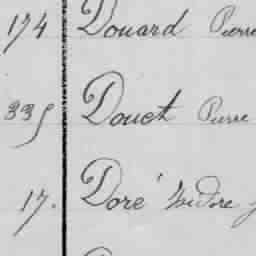 174 Douard Pierre
335 Douet Pierre
17. Doré Isidore